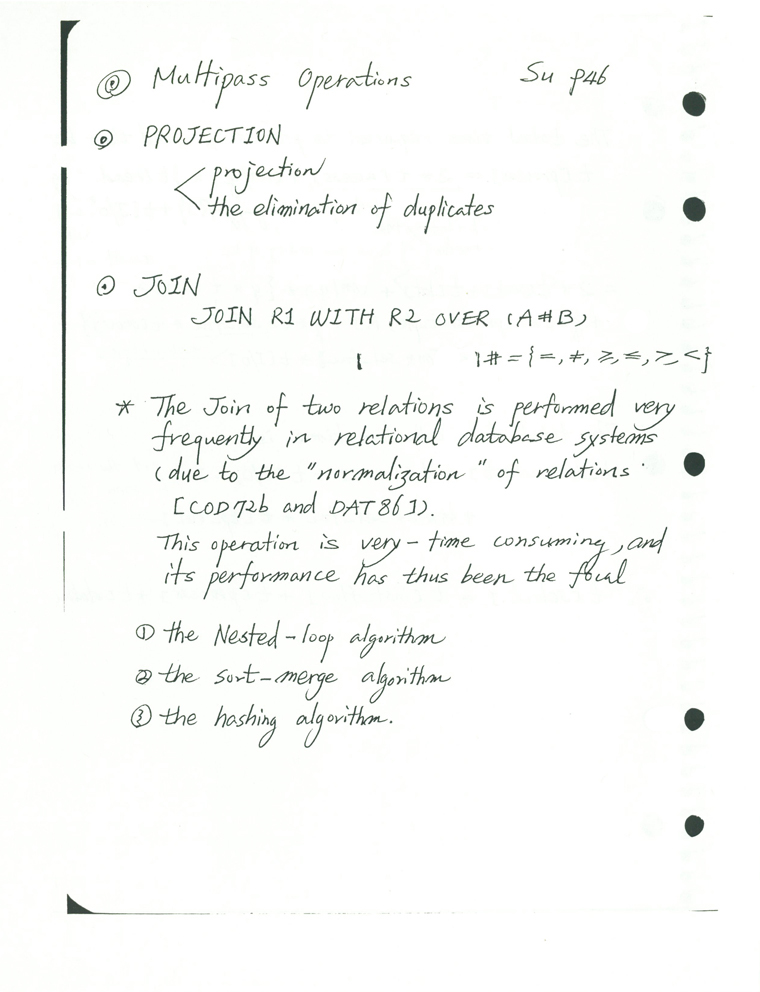 Multipass Operations Su p46
PROJECTION
projection
the elimination of duplicates
JOIN
JOIN R1 WITH R2 OVER (A#B)
| |# = {=, ≠, ≥, ≤, >, <}
* The Join of two relations is performed very
frequently in relational database systems
(due to the "normalization" of relations
[COD72b and DAT86]).
This operation is very-time consuming, and
its performance has thus been the focal
① the Nested-loop algorithm
② the sort-merge algorithm
③ the hashing algorithm.